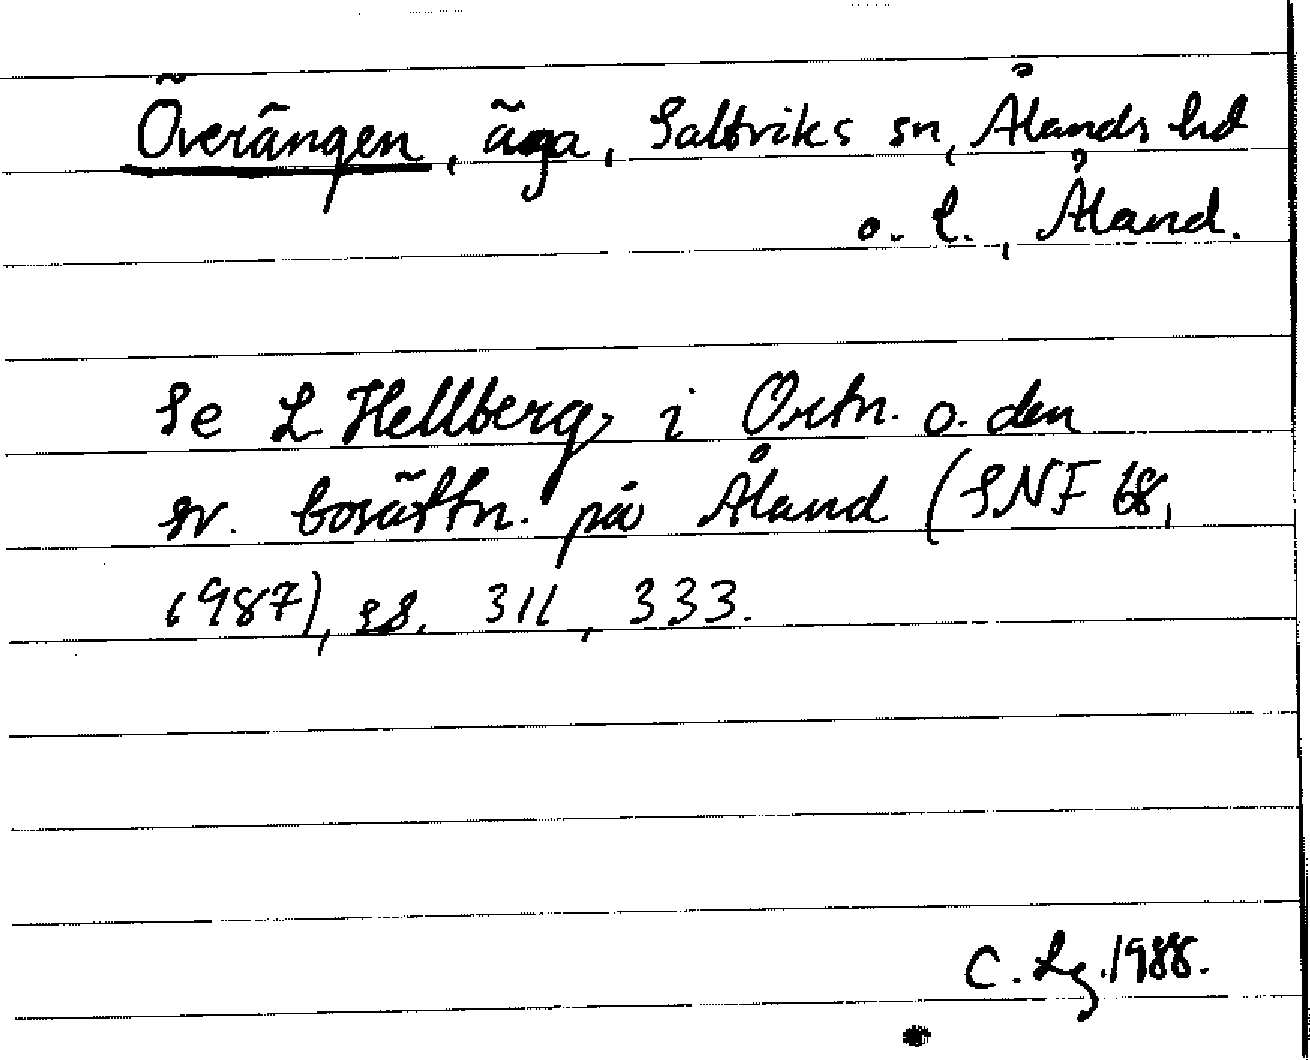 Överängen, äga, Saltviks sn, Ålands hd
o. l., Åland.
Se L Hellberg i Ortn. o. den
sv. bosättn. på Åland (SNF 68,
1987), ss. 311, 333.
C. Lg. 1988.